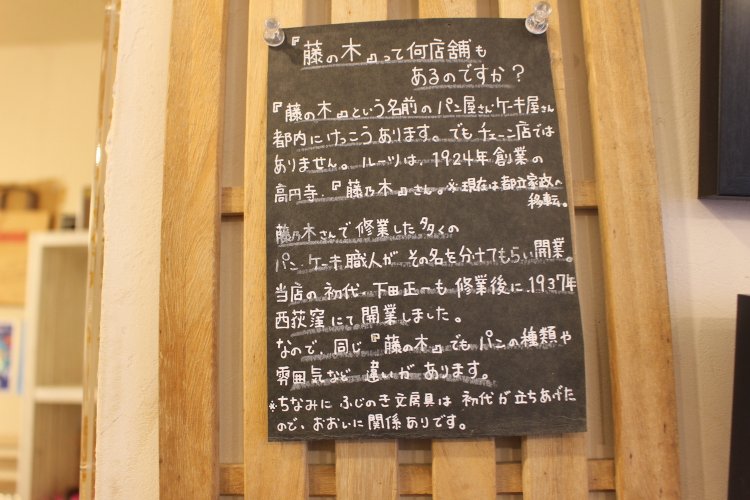 『藤の木』って何店舗も
あるのですか？
『藤の木』という名前のパン屋さんケーキ屋さん
都内にけっこうあります。でもチェーン店では
ありません。ルーツは、1924年創業の
高円寺『藤乃木』さん。※現在は都立家政へ
移転。
藤乃木さんで修業した多くの
パン・ケーキ職人がその名を分けてもらい開業。
当店の初代・下田正一も修業後に、1937年
西荻窪にて開業しました。
なので、同じ『藤の木』でもパンの種類や
雰囲気など違いがあります。
※ちなみにふじのき文房具は初代が立ちあげた
ので、おおいに関係ありです。